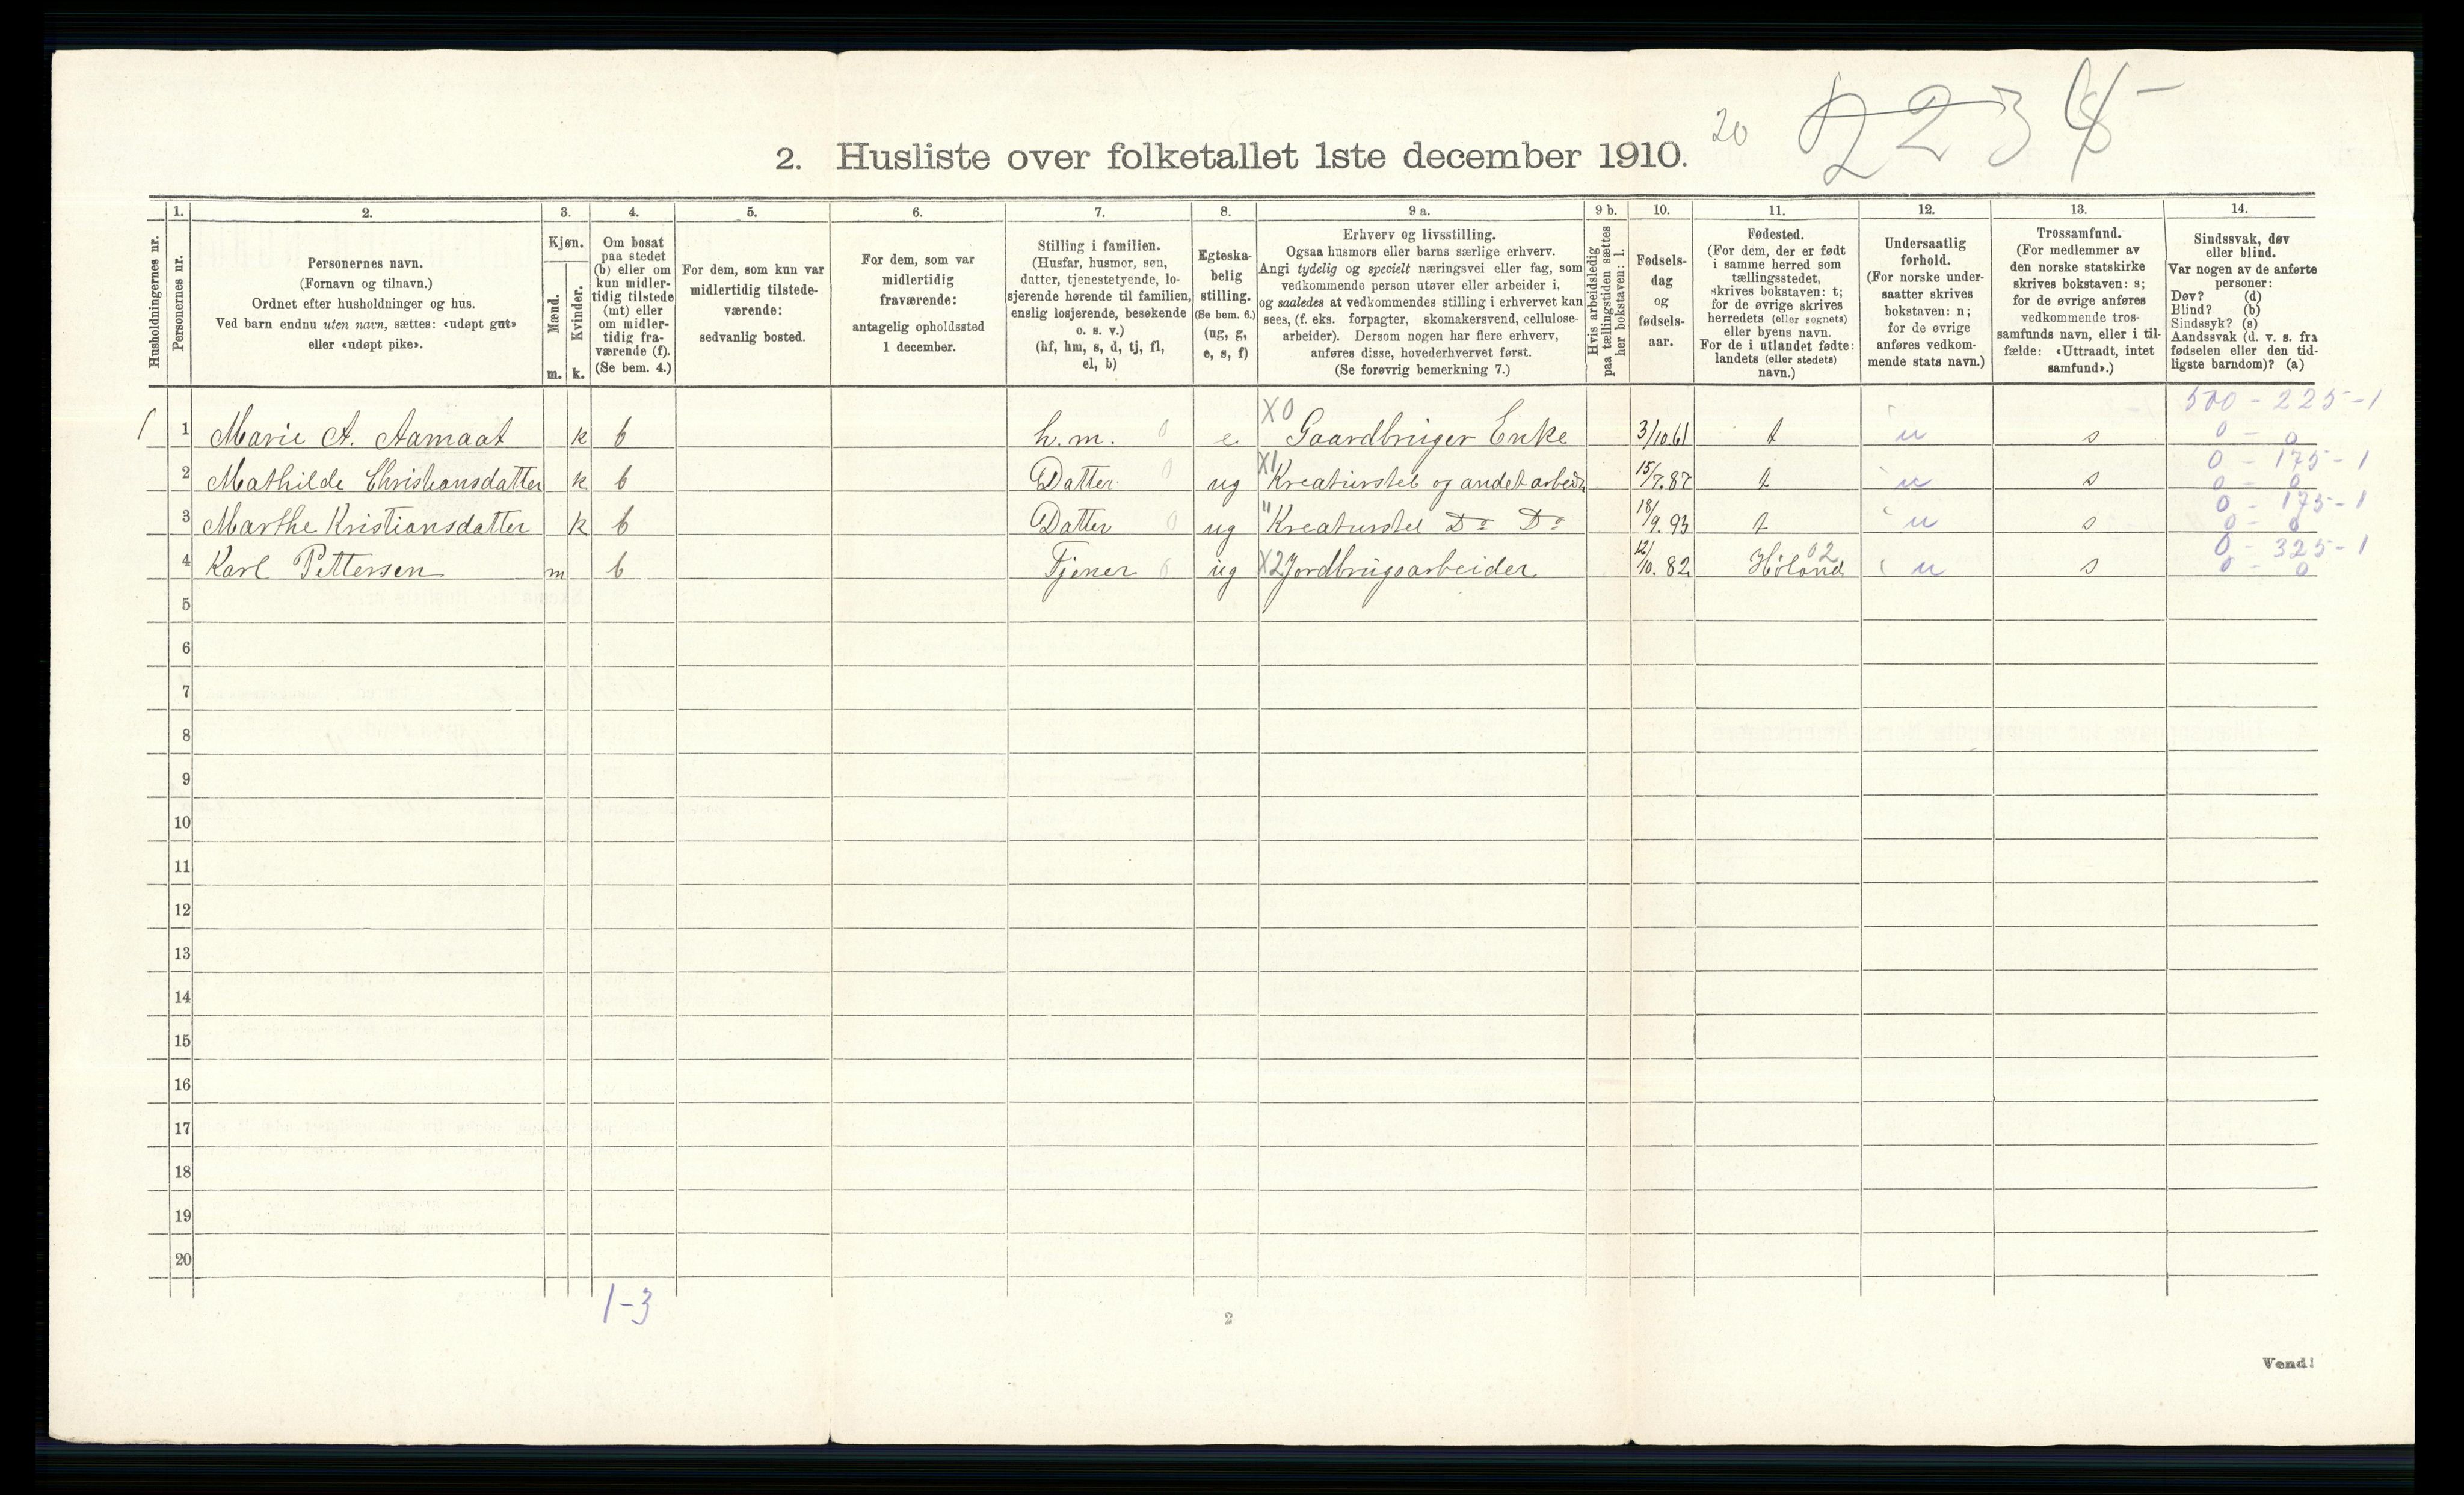 20
2. Husliste over folketallet 1ste december 1910.
Husholdningernes nr.
1. Personernes nr.
2. Personernes navn.
(Fornavn og tilnavn.)
Ordnet efter husholdninger og hus.
Ved barn endnu uten navn, sættes: «udøpt gut»
eller «udøpt pike».
3. Kjøn.
Mænd. m.
Kvinder. k.
4. Om bosat
paa stedet
(b) eller om
kun midler-
tidig tilstede
(mt) eller
om midler-
tidig fra-
værende (f).
(Se bem. 4.)
5. For dem, som kun var
midlertidig tilstede-
værende:
sedvanlig bosted.
6. For dem, som var
midlertidig
fraværende:
antagelig opholdssted
1 december.
7. Stilling i familien.
(Husfar, husmor, søn,
datter, tjenestetyende, lo-
sjerende hørende til familien,
enslig losjerende, besøkende
o. s. v.)
(hf, hm, s, d, tj, fl,
el, b)
8. Egteska-
belig
stilling.
(Se bem. 6.)
(ug, g,
e, s, f)
9 a. Erhverv og livsstilling.
Ogsaa husmors eller barns særlige erhverv.
Angi tydelig og specielt næringsvei eller fag, som
vedkommende person utøver eller arbeider i,
og saaledes at vedkommendes stilling i erhvervet kan
sees, (f. eks. forpagter, skomakersvend, cellulose-
arbeider). Dersom nogen har flere erhverv,
anføres disse, hovederhvervet først.
(Se forøvrig bemerkning 7.)
9 b. Hvis arbeidsledig
paa tællingstiden sættes
her bokstaven: l.
10. Fødsels-
dag
og
fødsels-
aar.
11. Fødested.
(For dem, der er født
i samme herred som
tællingsstedet,
skrives bokstaven: t;
for de øvrige skrives
herredets (eller sognets)
eller byens navn.
For de i utlandet fødte:
landets (eller stedets)
navn.)
12. Undersaatlig
forhold.
(For norske under-
saatter skrives
bokstaven: n;
for de øvrige
anføres vedkom-
mende stats navn.)
13. Trossamfund.
(For medlemmer av
den norske statskirke
skrives bokstaven: s;
for de øvrige anføres
vedkommende tros-
samfunds navn, eller i til-
fælde: «Uttraadt, intet
samfund».)
14. Sindssvak, døv
eller blind.
Var nogen av de anførte
personer:
Døv? (d)
Blind? (b)
Sindssyk? (s)
Aandssvak (d. v. s. fra
fødselen eller den tid-
ligste barndom)? (a)
500 - 225 - 1
1 1 Marie A. Aamaat k b h.m. 0 e X0 Gaardbruger Enke 3/10.61 t n s 0 - 0
0 - 175 - 1
2 Mathilde Christiansdatter k b Datter 0 ug X1 Kreaturstel og andet arbeide 15/7.87 t n s 0 - 0
0 - 175 - 1
3 Marthe Kristiansdatter k b Datter 0 ug " Kreaturstel Do Do 18/9.93 t n s 0 - 0
0 - 325 - 1
4 Karl Pettersen m b Tjener 0 ug X2 Jordbrugsarbeider 12/10.82 Høland 02 n s 0 - 0
5
6
7
8
9
10
11
12
13
14
15
16
17
18
19
20
1-3
2
Vend!